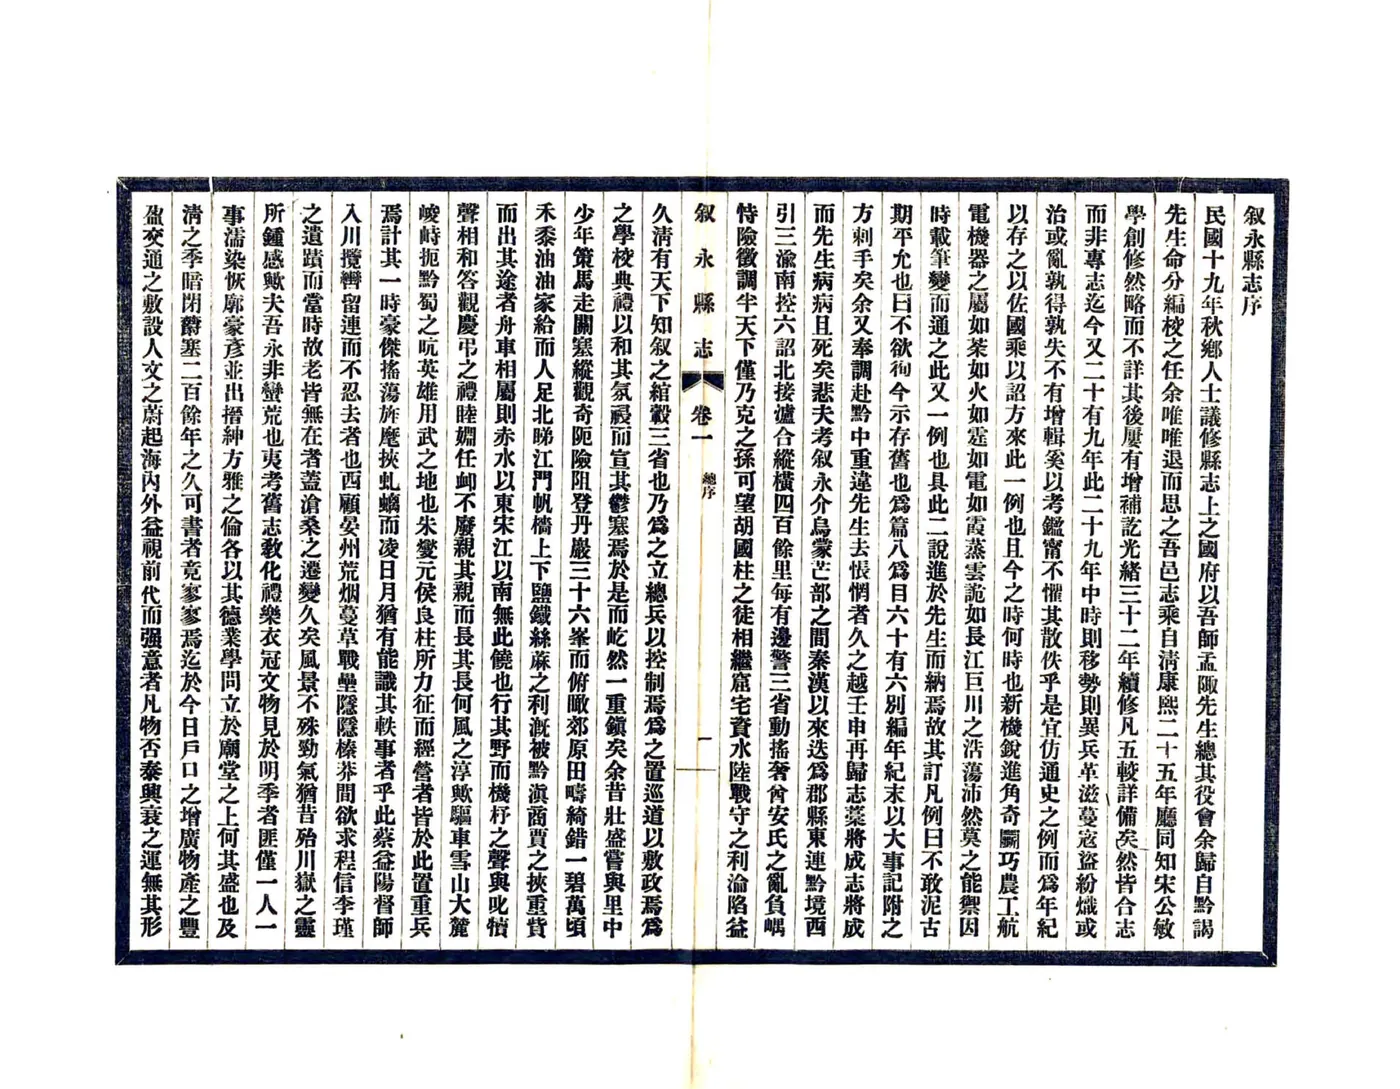 叙永縣志序
民國十九年秋鄉人士議修縣志上之國府以吾師孟陬先生總其役會余歸自黔謁
先生命分編校之任余唯唯退而思之吾邑志乘自淸康熙二十五年廳同知宋公敏
學創修然略而不詳其後屢有增補訖光緖三十二年續修凡五較詳備矣然皆合志
而非專志迄今又二十有九年此二十九年中時則移勢則異兵革滋蔓寇盜紛熾或
治或亂孰得孰失不有增輯奚以考鑑甯不懼其散佚乎是宜仿通史之例而爲年紀
以存之以佐國乘以詔方來此一例也且今之時何時也新機銳進角奇鬭巧農工航
電機器之屬如荼如火如霆如電如霞蒸雲詭如長江巨川之浩蕩沛然莫之能禦因
時載筆變而通之此又一例也具此二說進於先生而納焉故其訂凡例曰不敢泥古
期平允也曰不欲徇今示存舊也爲篇八爲目六十有六別編年紀末以大事記附之
方刺手矣余又奉調赴黔中重違先生去悵惘者久之越壬申再歸志藁將成志將成
而先生病病且死矣悲夫考叙永介烏蒙芒部之間秦漢以來迭爲郡縣東連黔境西
引三渝南控六詔北接瀘合縱橫四百餘里每有邊警三省動搖奢酋安氏之亂負嵎
恃險徵調半天下僅乃克之孫可望胡國柱之徒相繼窟宅資水陸戰守之利淪陷益
叙永縣志 卷一 總序 一
久淸有天下知叙之綰轂三省也乃爲之立總兵以控制焉爲之置巡道以敷政焉爲
之學校典禮以和其氛祲而宣其鬱塞焉於是而屹然一重鎭矣余昔壯盛嘗與里中
少年策馬走關塞縱觀奇阨險阻登丹巖三十六峯而俯瞰郊原田疇綺錯一碧萬頃
禾黍油油家給而人足北睇江門帆檣上下鹽鐵絲蔴之利溉被黔滇商賈之挾重貲
而出其途者舟車相屬則赤水以東宋江以南無此饒也行其野而機杼之聲與叱犢
聲相和答觀慶弔之禮睦嫺任衈不廢親其親而長其長何風之淳歟驅車雪山大麓
峻峙扼黔蜀之吭英雄用武之地也朱燮元侯良柱所力征而經營者皆於此置重兵
焉計其一時豪傑搖蕩旌麾挾虬螭而凌日月猶有能識其軼事者乎此蔡益陽督師
入川攬轡留連而不忍去者也西顧晏州荒烟蔓草戰壘隱隱榛莽間欲求程信李瑾
之遺蹟而當時故老皆無在者蓋滄桑之遷變久矣風景不殊勁氣猶昔殆川嶽之靈
所鍾感歟夫吾永非蠻荒也夷考舊志敎化禮樂衣冠文物見於明季者匪僅一人一
事濡染恢廓豪彥並出搢紳方雅之倫各以其德業學問立於廟堂之上何其盛也及
淸之季暗閉蔚塞二百餘年之久可書者竟寥寥焉迄於今日戶口之增廣物產之豐
盈交通之敷設人文之蔚起海內外益視前代而强意者凡物否泰興衰之運無其形